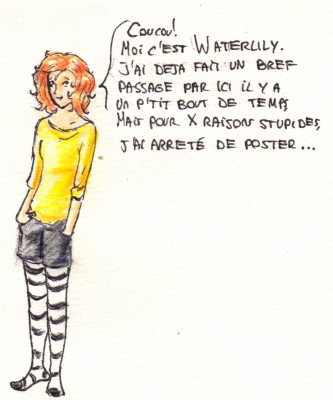 Coucou!
Moi c'est WATERLILY.
J'ai deja fait un bref
passage par ici il y a
un p'tit bout de temps,
Mais pour X raison stupides,
j'ai arreté de poster...